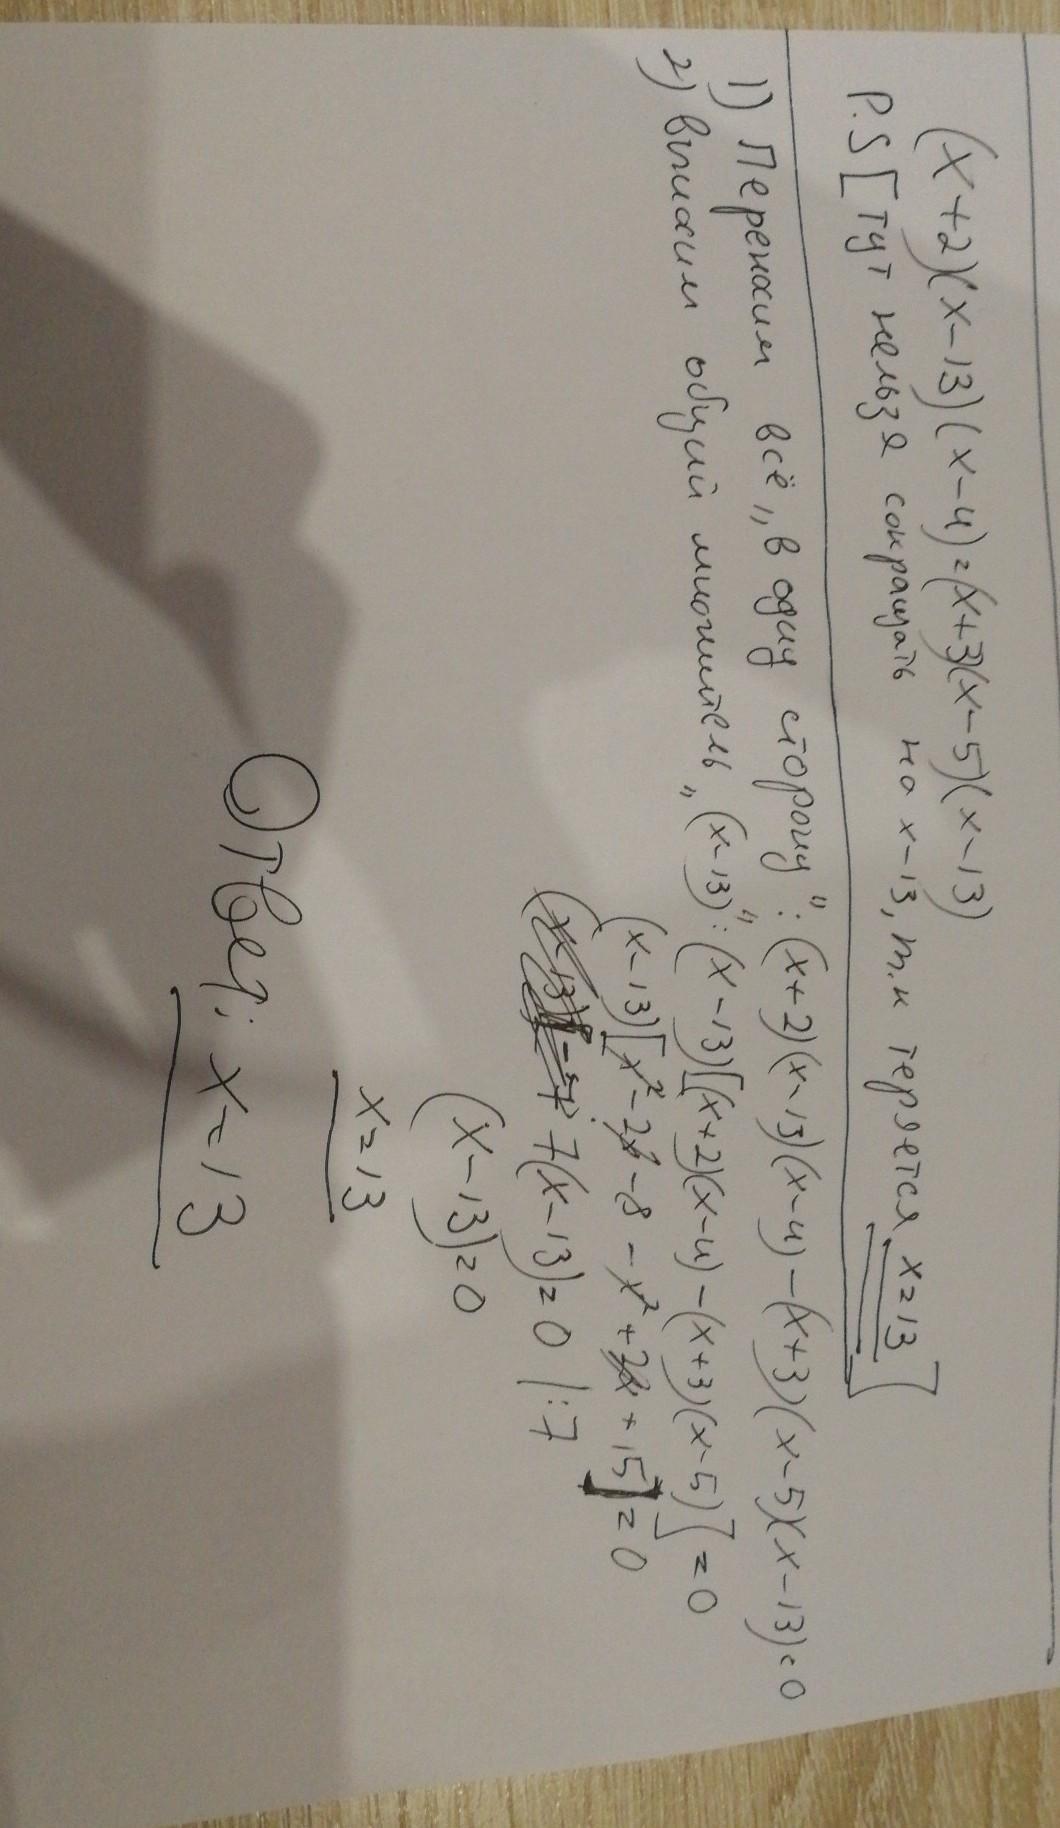 (x+2)(x-13)(x-4)=(x+3)(x-5)(x-13)
P.S [Тут нельзя сокращать на x-13, т.к теряется x=13]
1) Переносим всё „в одну сторону": (x+2)(x-13)(x-4)-(x+3)(x-5)(x-13)=0
2) Выносим общий множитель „(x-13)": (x-13)[(x+2)(x-4)-(x+3)(x-5)]=0
(x-13)[x²-2x-8-x²+2x+15]=0
7(x-13)=0 |:7
(x-13)=0
x=13
Ответ: x=13